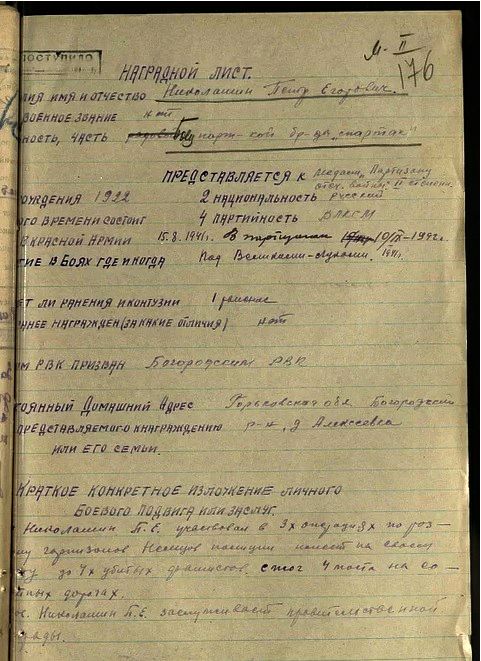 ПОСТУПИЛО
М-II
176
НАГРАДНОЙ ЛИСТ.
ЛИЯ ИМЯ И ОТЧЕСТВО Николашин Петр Егорович.
ВОЕННОЕ ЗВАНИЕ нет
НОСТЬ, ЧАСТЬ парт-кой бр-ды "спартак"
ПРЕДСТАВЛЯЕТСЯ К медали "Партизану
отеч. войны" II степени
РОЖДЕНИЯ 1922 2 НАЦИОНАЛЬНОСТЬ русский
ОГО ВРЕМЕНИ СОСТОИТ 4 ПАРТИЙНОСТЬ ВЛКСМ
В КРАСНОЙ АРМИИ 15.8.1941г. В партизанах 10/IX-1942г.
ТИЕ В БОЯХ ГДЕ И КОГДА Под Великими-Луками. 1941г.
ЕТ ЛИ РАНЕНИЯ И КОНТУЗИИ 1 ранение
НЕЕ НАГРАЖДЕН (ЗА КАКИЕ ОТЛИЧИЯ) нет
ИМ РВК ПРИЗВАН Богородским РВК
ТОЯННЫЙ ДОМАШНИЙ АДРЕС Горьковская обл. Богородский
ПРЕДСТАВЛЯЕМОГО К НАГРАЖДЕНИЮ р-н, д Алексеевка
ИЛИ ЕГО СЕМЬИ.
КРАТКОЕ КОНКРЕТНОЕ ИЗЛОЖЕНИЕ ЛИЧНОГО
БОЕВОГО ПОДВИГА ИЛИ ЗАСЛУГ.
Николашин П.Е. участвовал в 3х операциях по роз-
му гарнизонов Немцов полиции имеет на своем
ту до 4х убитых фашистов. сжог 4 моста на со-
йных дорогах.
ов. Николашин П.Е. заслуживает правительственной
рады.